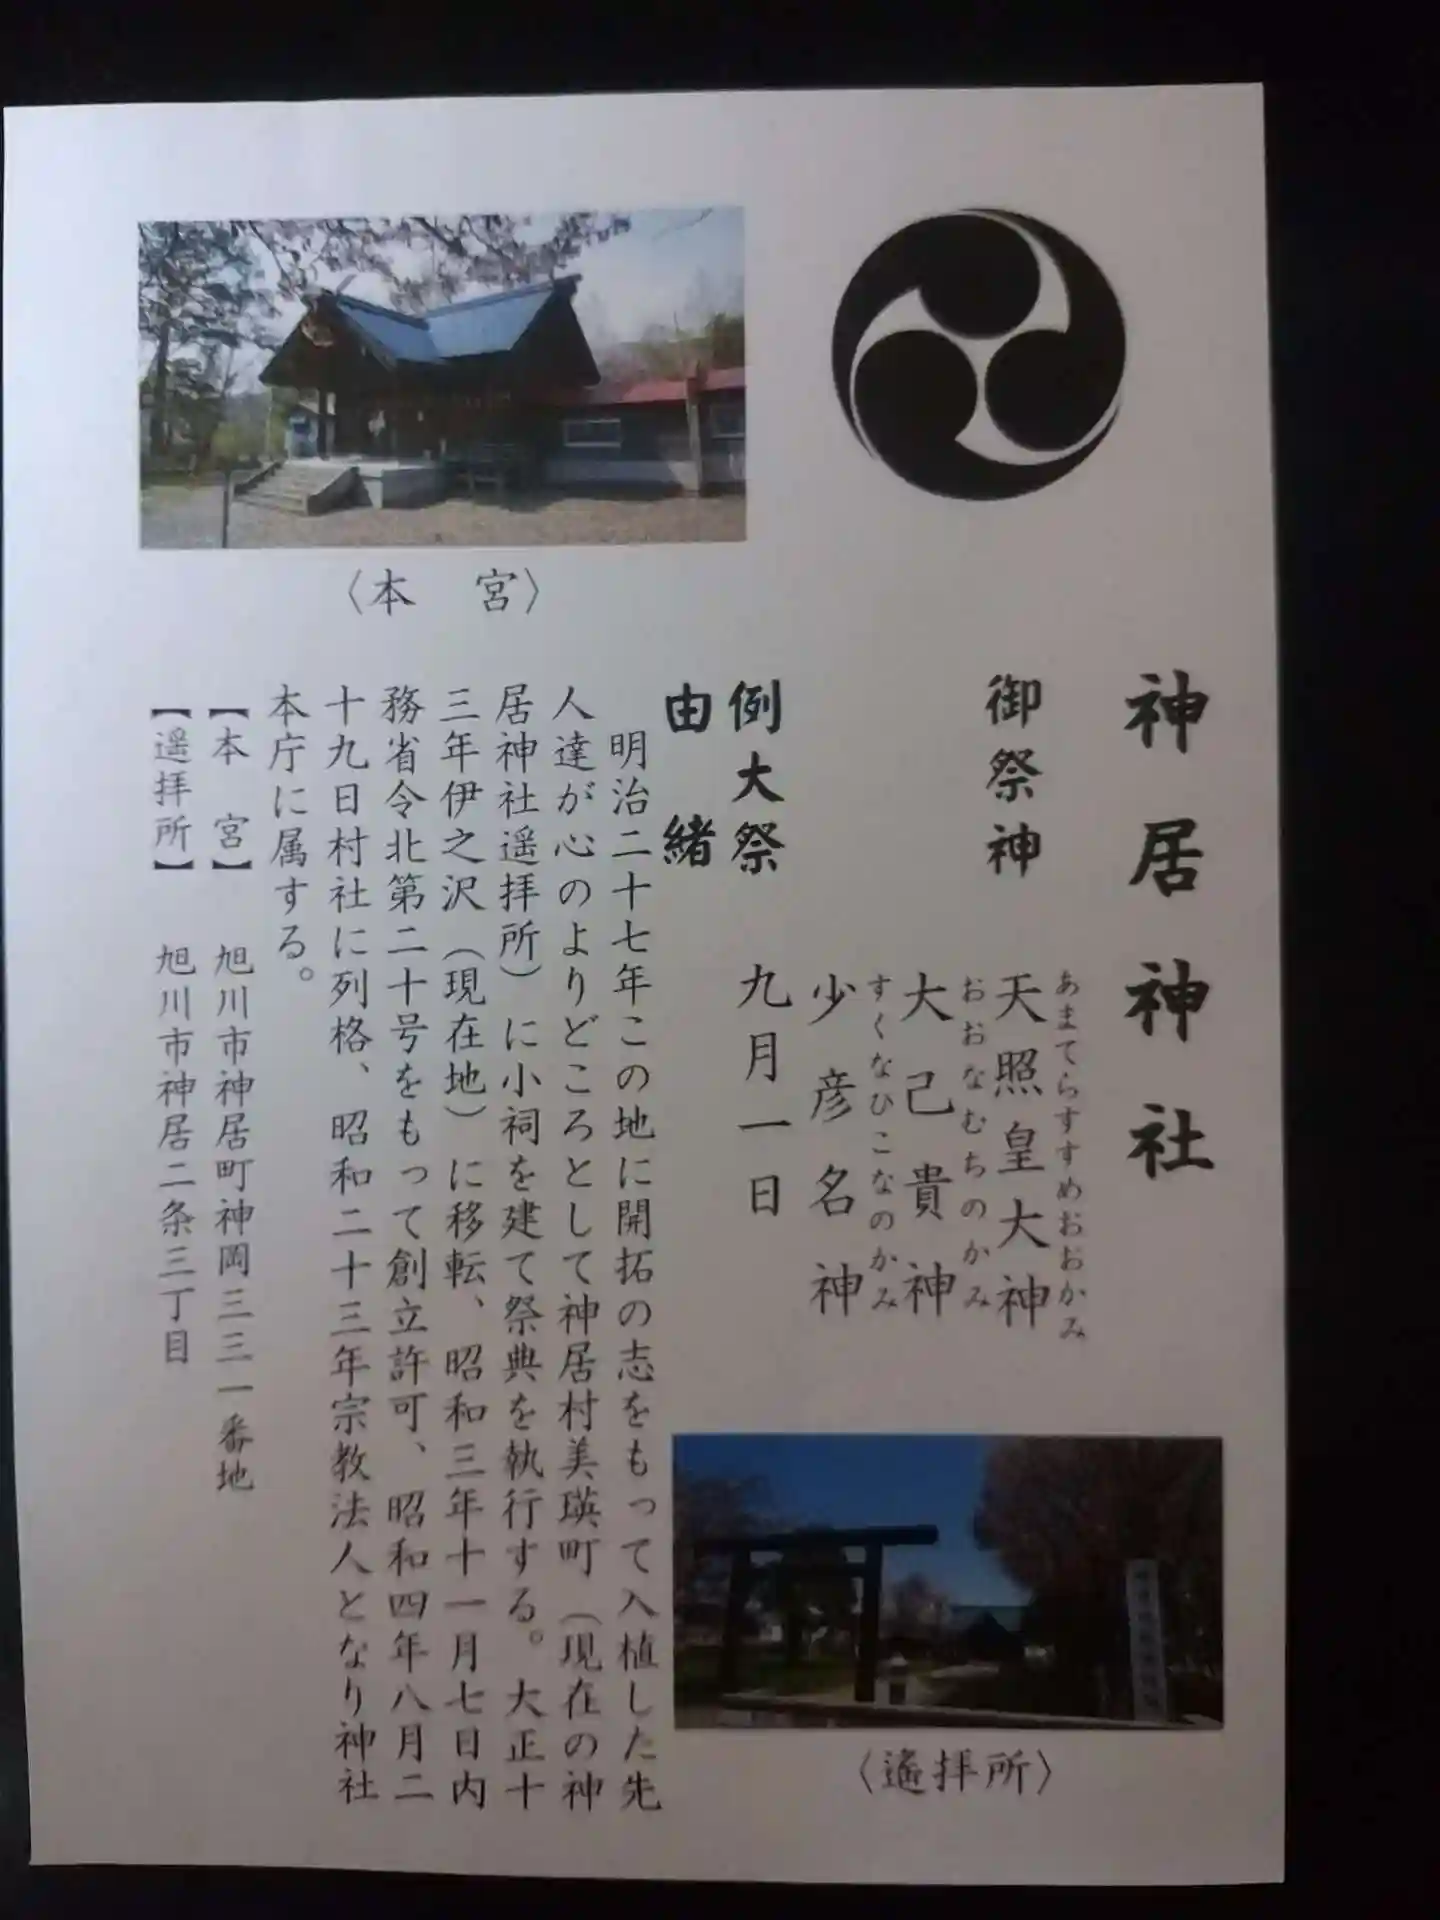 神居神社
御祭神
あまてらすすめおおかみ
天照皇大神
おおなむちのかみ
大己貴神
すくなひこなのかみ
少彦名神
例大祭 九月一日
由緒
明治二十七年この地に開拓の志をもって入植した先
人達が心のよりどころとして神居村美瑛町（現在の神
居神社遥拝所）に小祠を建て祭典を執行する。大正十
三年伊之沢（現在地）に移転、昭和三年十一月七日内
務省令北第二十号をもって創立許可、昭和四年八月二
十九日村社に列格、昭和二十三年宗教法人となり神社
本庁に属する。
【本 宮】 旭川市神居町神岡三三一番地
【遥拝所】 旭川市神居二条三丁目
〈本 宮〉
〈遙拝所〉